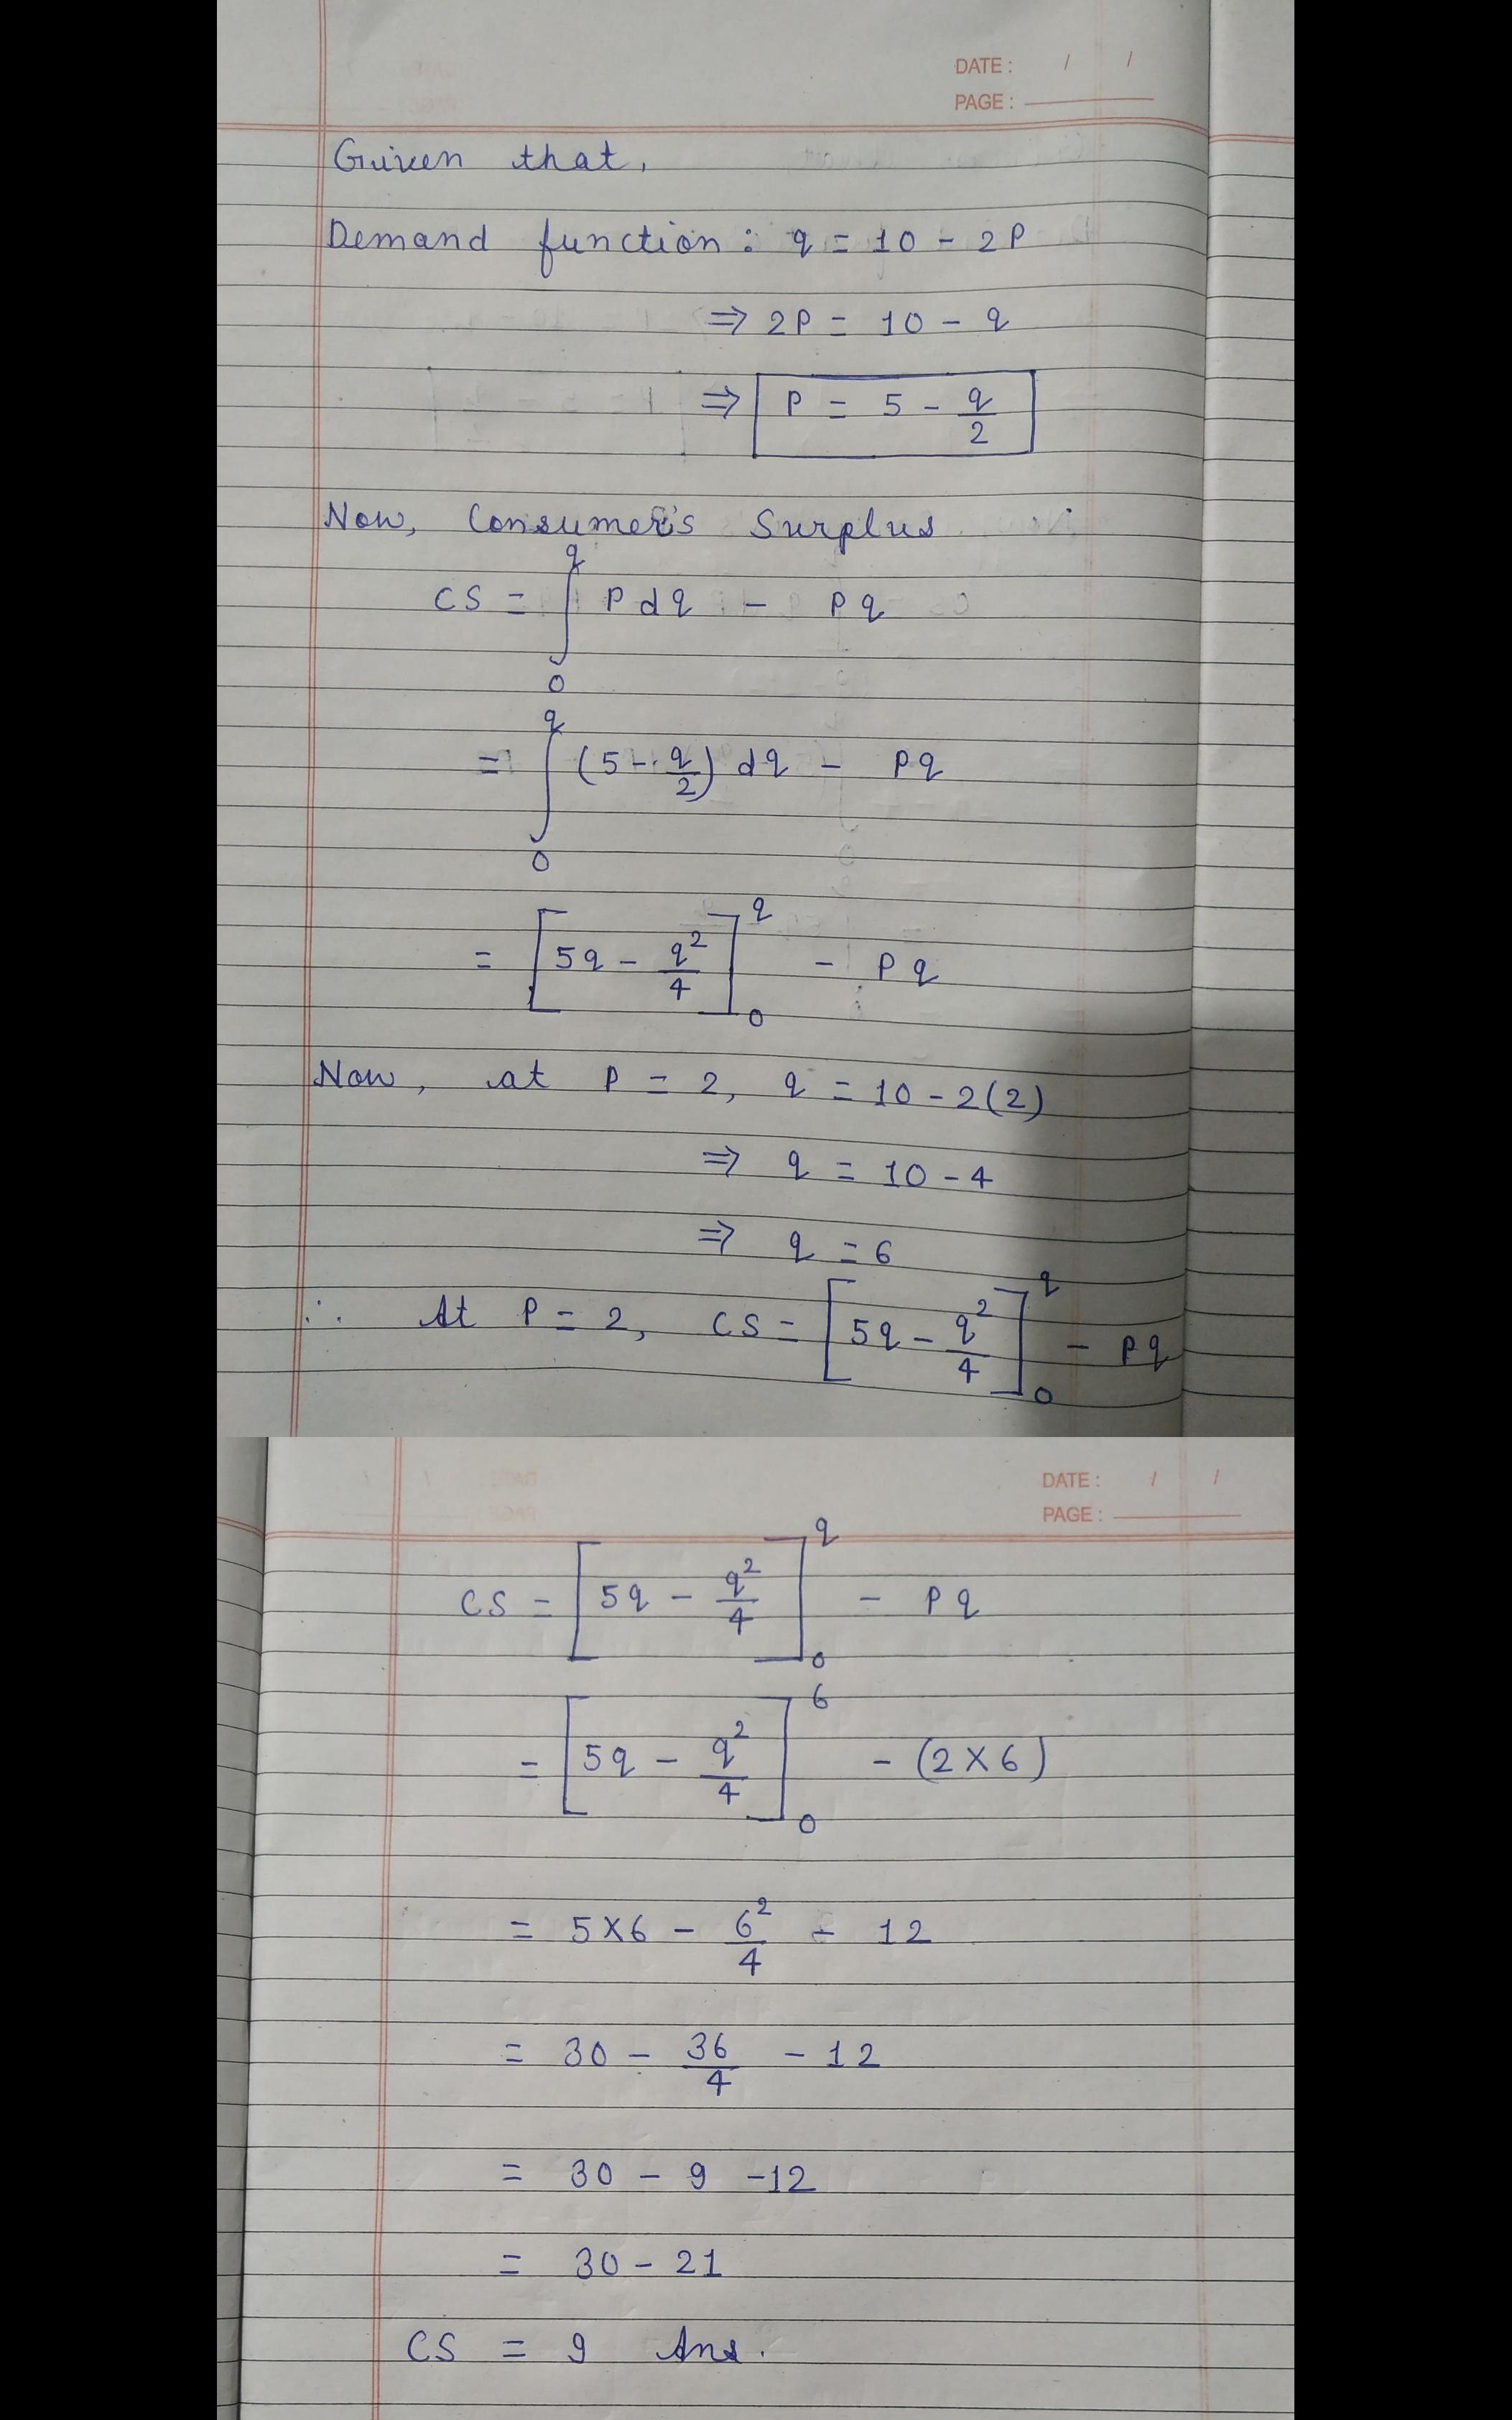 DATE : / /
PAGE :
Given that,
Demand function : q = 10 - 2P
⇒ 2P = 10 - q
⇒ P = 5 - q/2
Now, Consumer's Surplus
CS = ∫₀^q P dq - Pq
= ∫₀^q (5 - q/2) dq - Pq
= [5q - q²/4]₀^q - Pq
Now, at P = 2, q = 10 - 2(2)
⇒ q = 10 - 4
⇒ q = 6
∴ At P = 2, CS = [5q - q²/4]₀^q - Pq
DATE : / /
PAGE :
CS = [5q - q²/4]₀^q - Pq
= [5q - q²/4]₀^6 - (2×6)
= 5×6 - 6²/4 - 12
= 30 - 36/4 - 12
= 30 - 9 - 12
= 30 - 21
CS = 9 Ans.